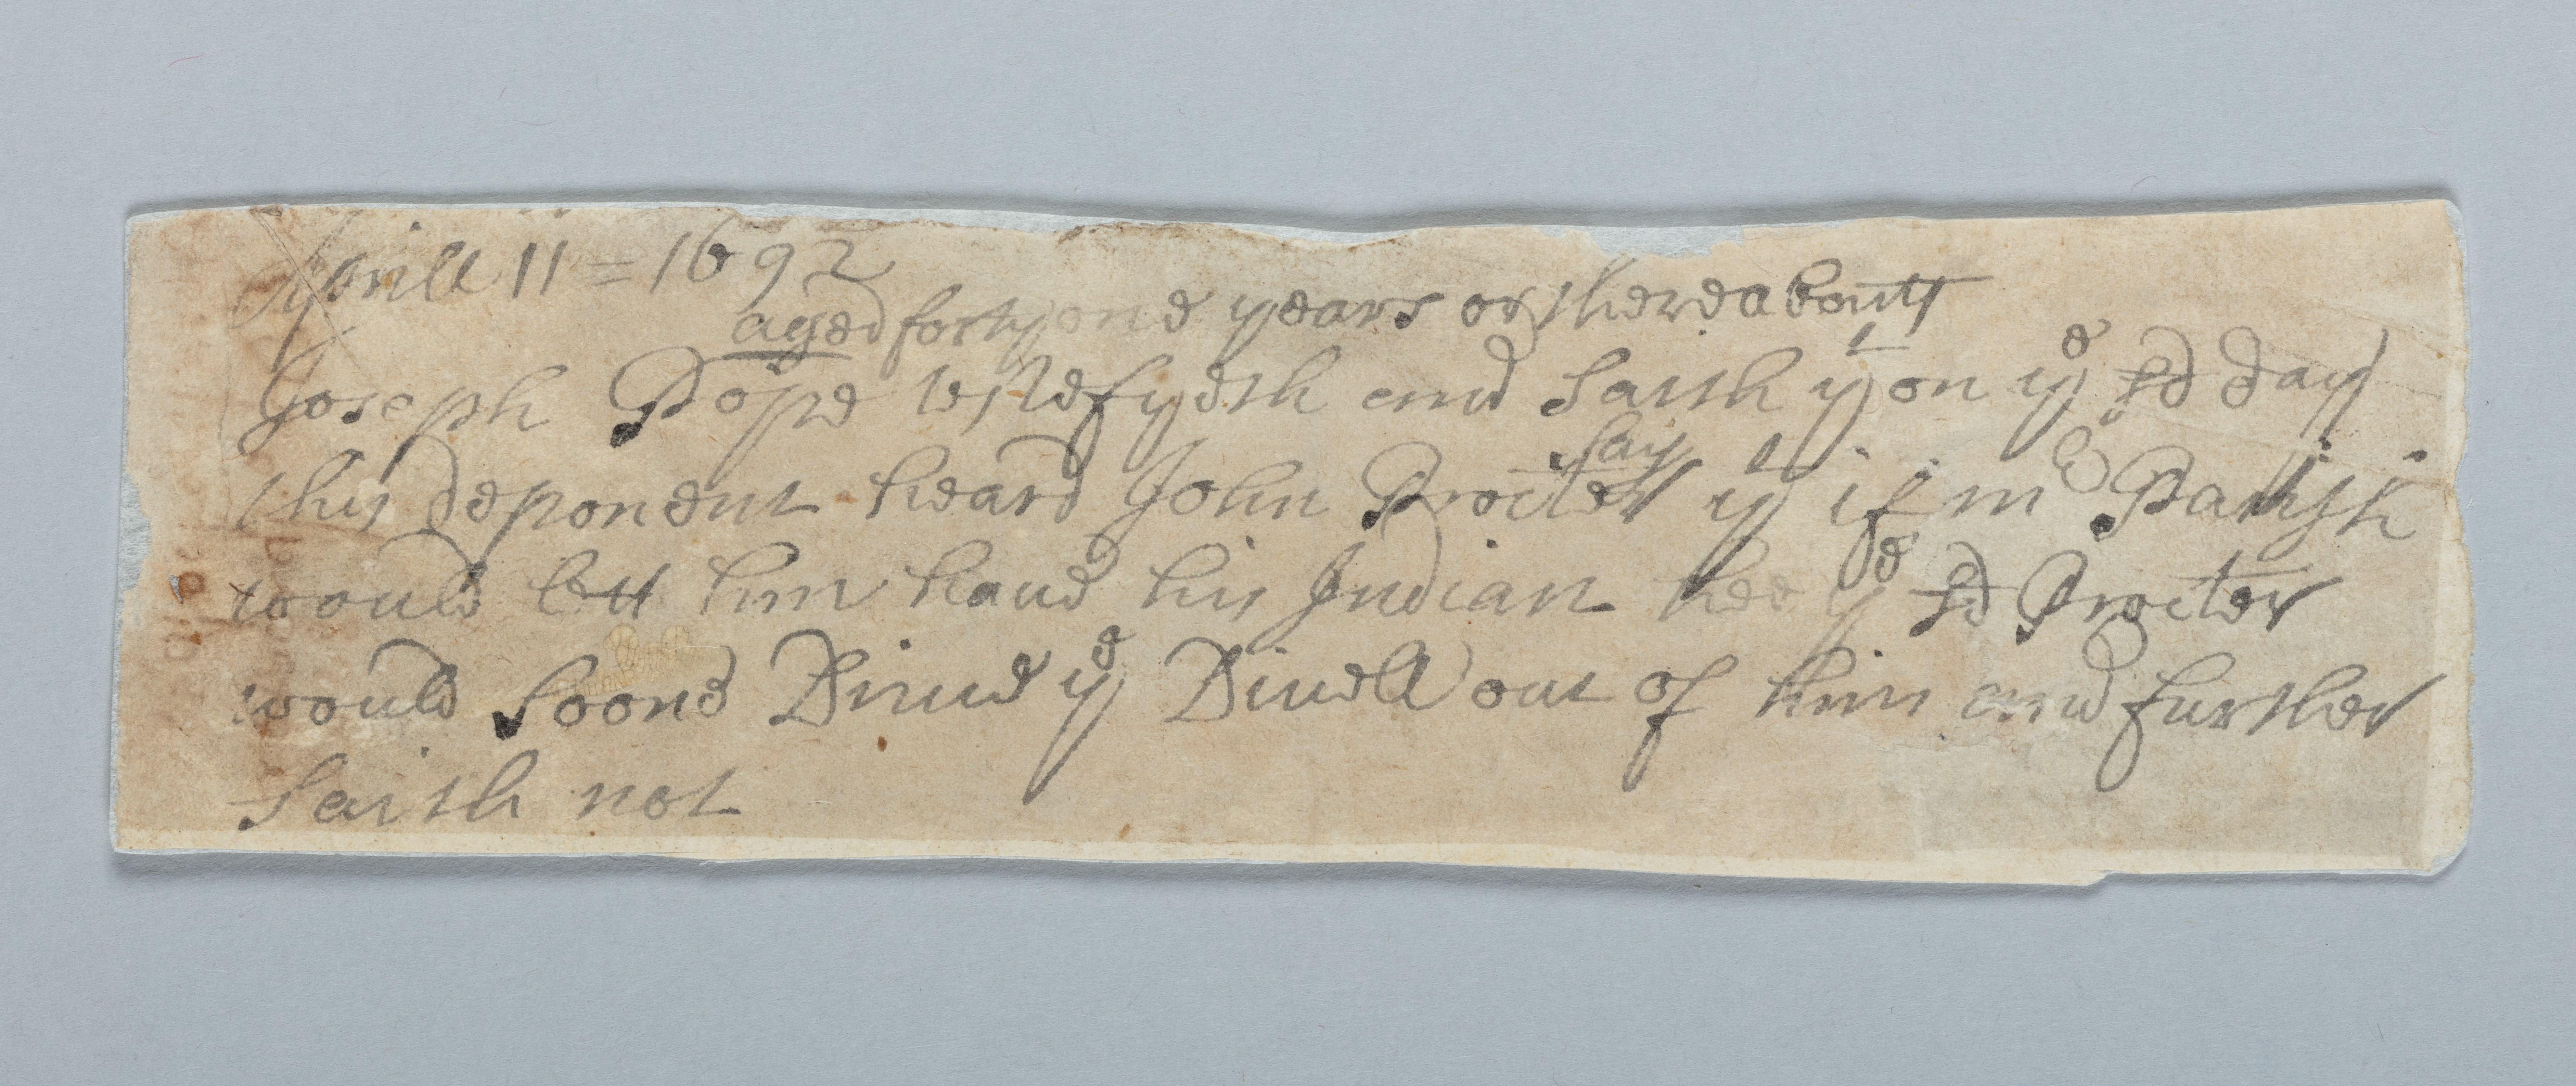 Aprill 11 = 1692
aged forty one years or thereabouts
Joseph Pope testefyeth and saith yt on ye sd day
say
this deponent heard John Procter yt if mr Parish
would lett him haue his Indian hee ye sd Procter
would soone Driue ye Diuell out of him and further
saith not